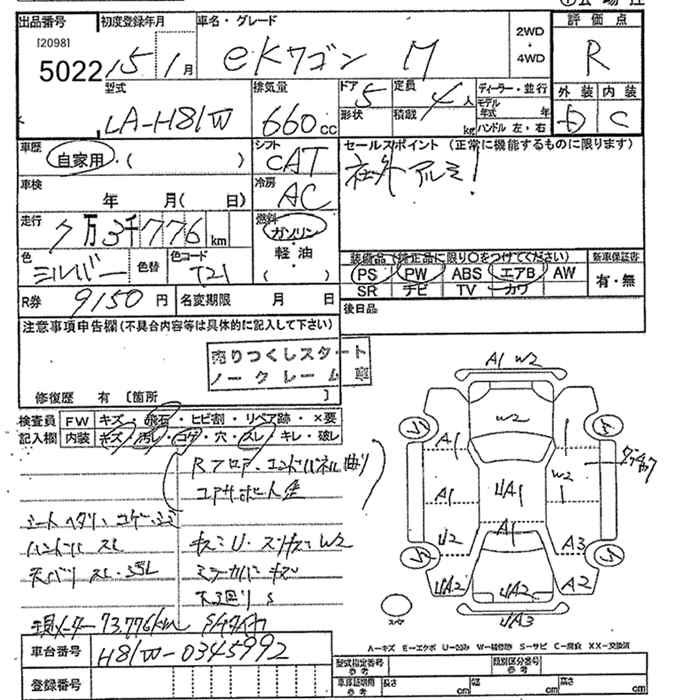 出品番号 初度登録年月 車名・グレード 評価点
[20981
5022 15 1月 eKワゴン M 2WD・4WD R
型式 排気量 ドア 定員 ディーラー・並行 外装 内装
LA-H81W 660cc 5 4人 モデル年式 年 D C
形状 積載 kg ハンドル 左・右
車歴 シフト セールスポイント (正常に機能するものに限ります)
自家用・( ) CAT 社外アルミ!
車検 年 月( 日) 冷房 AC
走行 7万3千776km 燃料 ガソリン
軽油
( )
色 シルバー 色替 色コード T21
装備品 (純正品に限り○をつけてください) 新車保証書
PS PW ABS エアB AW 有・無
SR ナビ TV カワ
R券 9150円 名変期限 月 日 後日品
注意事項申告欄 (不具合内容等は具体的に記入して下さい)
売りつくしスタート
ノークレーム車
修復歴 有 [箇所 ]
検査員 FW キズ・飛石・ヒビ割・リペア跡・×要
記入欄 内装 キズ・汚レ・コゲ・穴・スレ・キレ・破レ
Rフロア・エンドパネル曲り
シートヘタリ・コゲ・シミ
ハンドル スレ キズミU・スリキズミW2
天バリ スレ・汚レ ミラーカバーキズ
下廻りS
現メーター 73,776km
A1 W2
W2
A1
W2
A1 UA1
U2 A1 A3
UA2 UA2 A2
UA3
スペア
A-キズ E-エクボ U-凹み W-補修跡 S-サビ C-腐食 XX-交換済
車台番号 H81W-0345992
登録番号
型式指定番号 参考 類別区分番号 参考
車庫証明用 参考 長さ cm 幅 cm 高さ cm